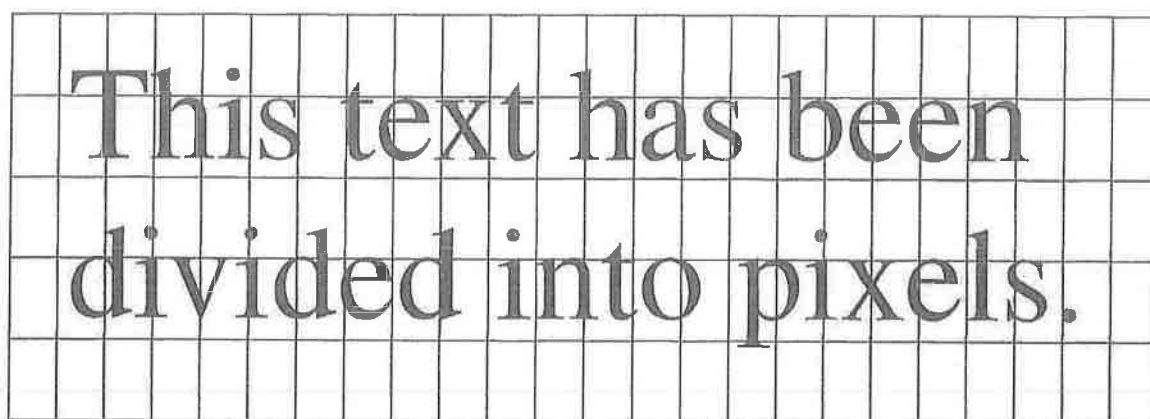 This text has been
divided into pixels.